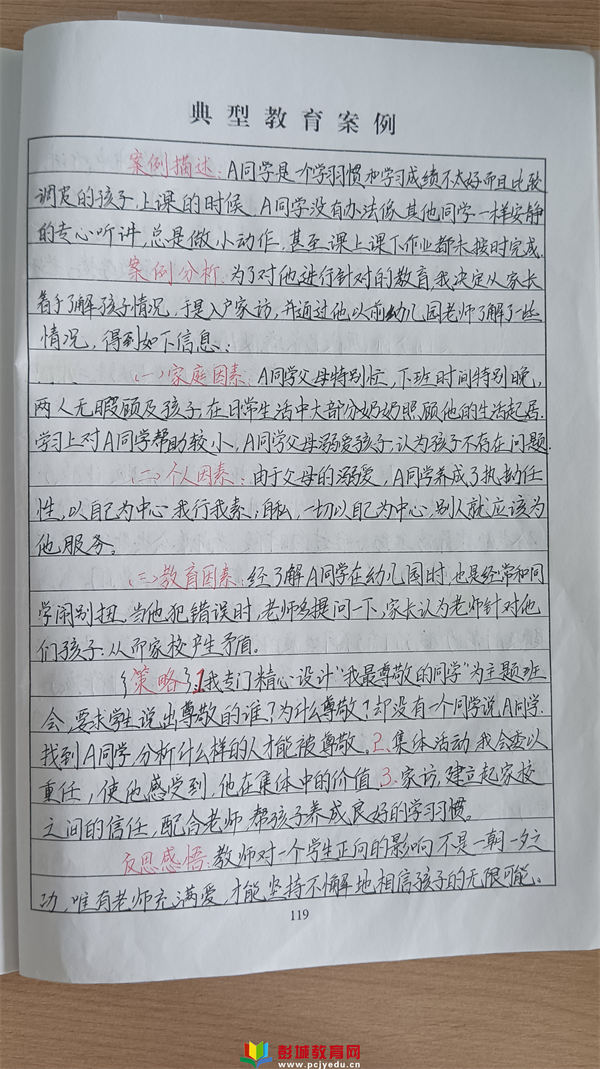 典型教育案例
案例描述：A同学是一个学习习惯和学习成绩不太好而且比较
调皮的孩子，上课的时候，A同学没有办法像其他同学一样安静
的专心听讲，总是做小动作，甚至课上课下作业都未按时完成。
案例分析：为了对他进行针对的教育，我决定从家长
着手了解孩子情况，于是入户家访，并通过他以前幼儿园老师了解了一些
情况，得到如下信息：
（一）家庭因素：A同学父母特别忙，下班时间特别晚，
两人无暇顾及孩子，在日常生活中大部分奶奶照顾他的生活起居，
学习上对A同学帮助较小，A同学父母溺爱孩子，认为孩子不存在问题.
（二）个人因素：由于父母的溺爱，A同学养成了执拗任
性，以自己为中心，我行我素；自私，一切以自己为中心，别人就应该为
他服务。
（三）教育因素：经了解A同学在幼儿园时，也是经常和同
学闹别扭，当他犯错误时，老师多提问一下，家长认为老师针对他
们孩子；从而家校产生矛盾。
策略 1.我专门精心设计“我最尊敬的同学”为主题班
会，要求学生说出尊敬的谁？为什么尊敬？却没有一个同学说A同学.
找到A同学，分析什么样的人才能被尊敬。2.集体活动，我会委以
重任，使他感受到，他在集体中的价值。3.家访，建立起家校
之间的信任，配合老师，帮孩子养成良好的学习习惯。
反思感悟：教师对一个学生正向的影响，不是一朝一夕之
功，唯有老师充满爱，才能坚持不懈地，相信孩子的无限可能。
119
彭城教育网
www.pcjyedu.cn